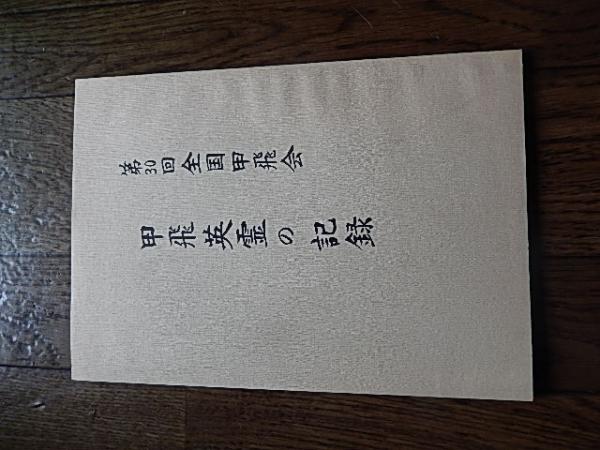 第30回全国甲飛会
甲飛英霊の記録